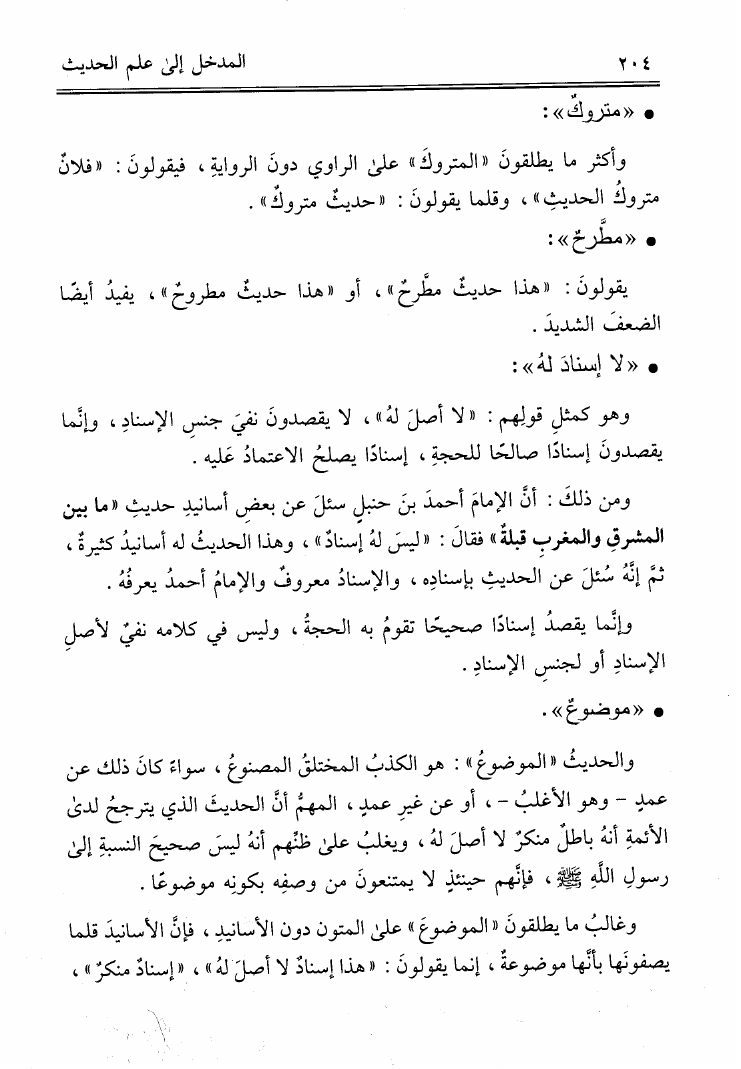 ٢٠٤ المدخل إلىٰ علم الحديث
• «متروكٌ»:
وأكثر ما يطلقونَ «المتروكَ» علىٰ الراوي دونَ الروايةِ، فيقولونَ: «فلانٌ
متروكُ الحديثِ»، وقلما يقولونَ: «حديثٌ متروكٌ».
• «مطَّرحٌ»:
يقولونَ: «هذا حديثٌ مطَّرحٌ»، أو «هذا حديثٌ مطروحٌ»، يفيدُ أيضًا
الضعفَ الشديدَ.
• «لا إسنادَ لهُ»:
وهو كمثلِ قولِهم: «لا أصلَ لهُ»، لا يقصدونَ نفيَ جنسِ الإسنادِ، وإنَّما
يقصدونَ إسنادًا صالحًا للحجةِ، إسنادًا يصلحُ الاعتمادُ عَليه.
ومن ذلكَ: أنَّ الإمامَ أحمدَ بنَ حنبلٍ سئلَ عن بعضِ أسانيدِ حديثِ «ما بين
المشرقِ والمغربِ قبلةٌ» فقالَ: «ليسَ لهُ إسنادٌ»، وهذا الحديثُ له أسانيدُ كثيرةٌ،
ثمَّ إنَّهُ سُئلَ عن الحديثِ بإسنادِه، والإسنادُ معروفٌ والإمامُ أحمدُ يعرفُهُ.
وإنَّما يقصدُ إسنادًا صحيحًا تقومُ به الحجةُ، وليس في كلامه نفيٌ لأصلِ
الإسنادِ أو لجنسِ الإسنادِ.
• «موضوعٌ».
والحديثُ «الموضوعُ»: هو الكذبُ المختلقُ المصنوعُ، سواءً كانَ ذلك عن
عمدٍ - وهو الأغلبُ -، أو عن غيرِ عمدٍ، المهمُّ أنَّ الحديثَ الذي يترجحُ لدىٰ
الأئمةِ أنهُ باطلٌ منكرٌ لا أصلَ لهُ، ويغلبُ علىٰ ظنِّهم أنهُ ليسَ صحيحَ النسبةِ إلىٰ
رسولِ اللَّهِ ﷺ، فإنَّهم حينئذٍ لا يمتنعونَ من وصفِه بكونِه موضوعًا.
وغالبُ ما يطلقونَ «الموضوعَ» علىٰ المتون دون الأسانيدِ، فإنَّ الأسانيدَ قلما
يصفونَها بأنَّها موضوعةٌ، إنما يقولونَ: «هذا إسنادٌ لا أصلَ لهُ»، «إسنادٌ منكرٌ»،